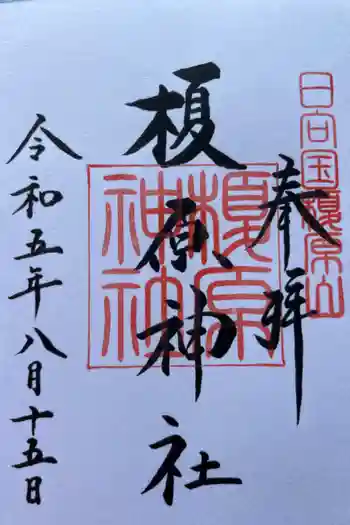 日向国榎原山
奉拝
榎原神社
榎原神社
令和五年八月十五日